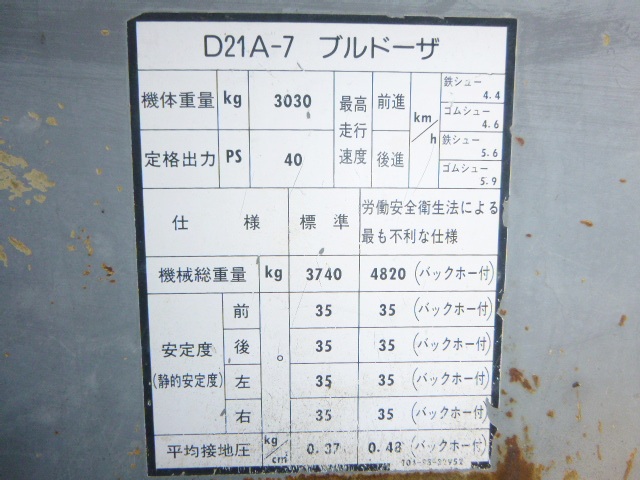 D21A-7 ブルドーザ
機体重量 kg 3030 最高走行速度 前進 km/h 鉄シュー 4.4
ゴムシュー 4.6
定格出力 PS 40 後進 鉄シュー 5.6
ゴムシュー 5.9
仕様 標準 労働安全衛生法による
最も不利な仕様
機械総重量 kg 3740 4820 (バックホー付)
安定度 (静的安定度) 前 ° 35 35 (バックホー付)
後 35 35 (バックホー付)
左 35 35 (バックホー付)
右 35 35 (バックホー付)
平均接地圧 kg/cm 0.37 0.48 (バックホー付)